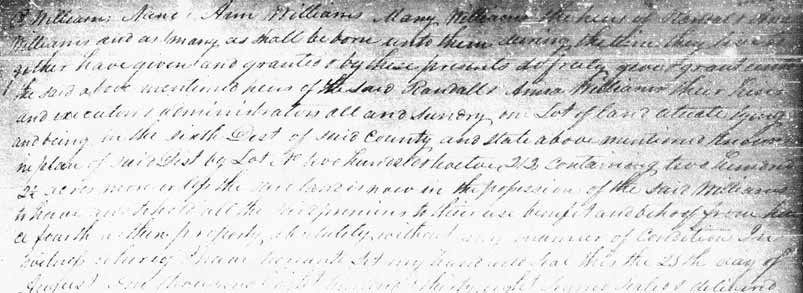 Williams Ann Williams Mary Williams the heirs of Randall & Anna
Williams and as many as shall be born unto them during the time they live
gether have given and granted & by these presents do freely give & grant unto
the said above mentioned heirs of the said Randall & Anna Williams their heirs
and executors administrators all and Sundry one Lot of land situate lying
and being in the sixth Dist of said County and state above mentioned known
in plan of said Dist by Lot No two hundred & twelve 212 Containing two hundred
2½ acres more or less the land is now in the possession of the said Williams
to have and to hold all the said premises to their use benefit and behoof from hen
ce fourth as their property absolutely without any manner of Condition In
witness whereof I have hereunto set my hand and seal this the 25th day of
August one thousand eight hundred & thirty eight signed sealed & delivered